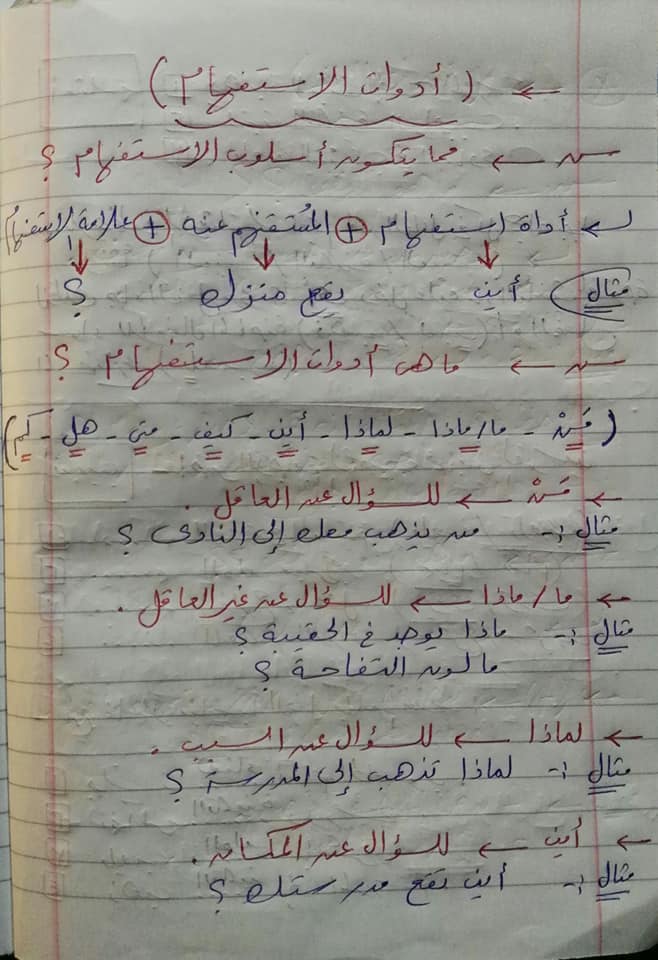 ← ( أدوات الاستفهام )
س ← مما يتكون أسلوب الاستفهام ؟
↳ أداة استفهام + المُستفهم عنه + علامة الاستفهام
مثال أين يقع منزلك ؟
س ← ما هى أدوات الاستفهام ؟
( مَنْ - ما/ماذا - لماذا - أين - كيف - متى - هل - كم )
← مَنْ ← للسؤال عن العاقل .
مثال :- من يذهب معك إلى النادى ؟
← ما/ماذا ← للسؤال عن غير العاقل .
مثال :- ماذا يوجد فى الحقيبة ؟
ما لون التفاحة ؟
← لماذا ← للسؤال عن السبب .
مثال :- لماذا تذهب إلى المدرسة ؟
← أين ← للسؤال عن المكان .
مثال :- أين تقع مدرستك ؟